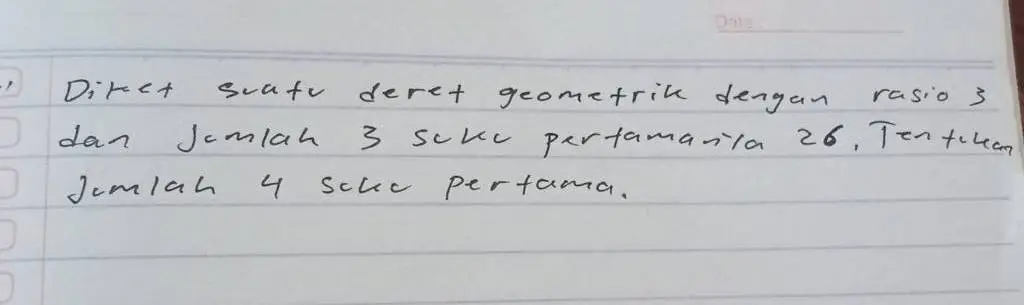 Date
Diket suatu deret geometrik dengan rasio 3
dan Jumlah 3 suku pertamanila 26, Tentukan
Jumlah 4 suku pertama.